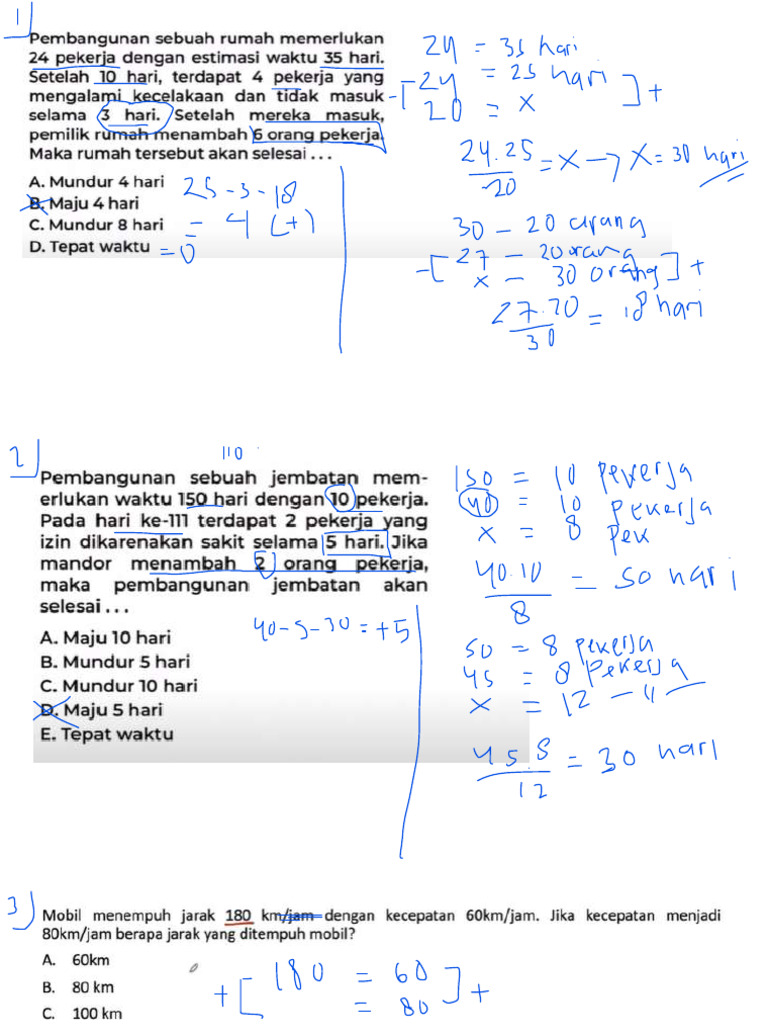 1)
Pembangunan sebuah rumah memerlukan
24 pekerja dengan estimasi waktu 35 hari.
Setelah 10 hari, terdapat 4 pekerja yang
mengalami kecelakaan dan tidak masuk
selama 3 hari. Setelah mereka masuk,
pemilik rumah menambah 6 orang pekerja.
Maka rumah tersebut akan selesai . . .
A. Mundur 4 hari
B. Maju 4 hari
C. Mundur 8 hari
D. Tepat waktu
25-3-18
= 4 (+)
= 0
24 = 35 hari
-[24 = 25 hari ]+
20 = x
24.25 = x → x = 30 hari
20
30 - 20 orang
-[27 - 20 orang ]+
x - 30 orang
27.20 = 18 hari
30
2)
110
Pembangunan sebuah jembatan mem-
erlukan waktu 150 hari dengan 10 pekerja.
Pada hari ke-111 terdapat 2 pekerja yang
izin dikarenakan sakit selama 5 hari. Jika
mandor menambah 2 orang pekerja,
maka pembangunan jembatan akan
selesai . . .
A. Maju 10 hari
B. Mundur 5 hari
C. Mundur 10 hari
D. Maju 5 hari
E. Tepat waktu
40-5-30 = +5
150 = 10 pekerja
40 = 10 pekerja
x = 8 pek
40.10 = 50 hari
8
50 = 8 pekerja
45 = 8 pekerja
x = 12 - 11 -
45.8 = 30 hari
12
3)
Mobil menempuh jarak 180 km/jam dengan kecepatan 60km/jam. Jika kecepatan menjadi
80km/jam berapa jarak yang ditempuh mobil?
A. 60km
B. 80 km
C. 100 km
+[ 180 = 60 ]+
= 80